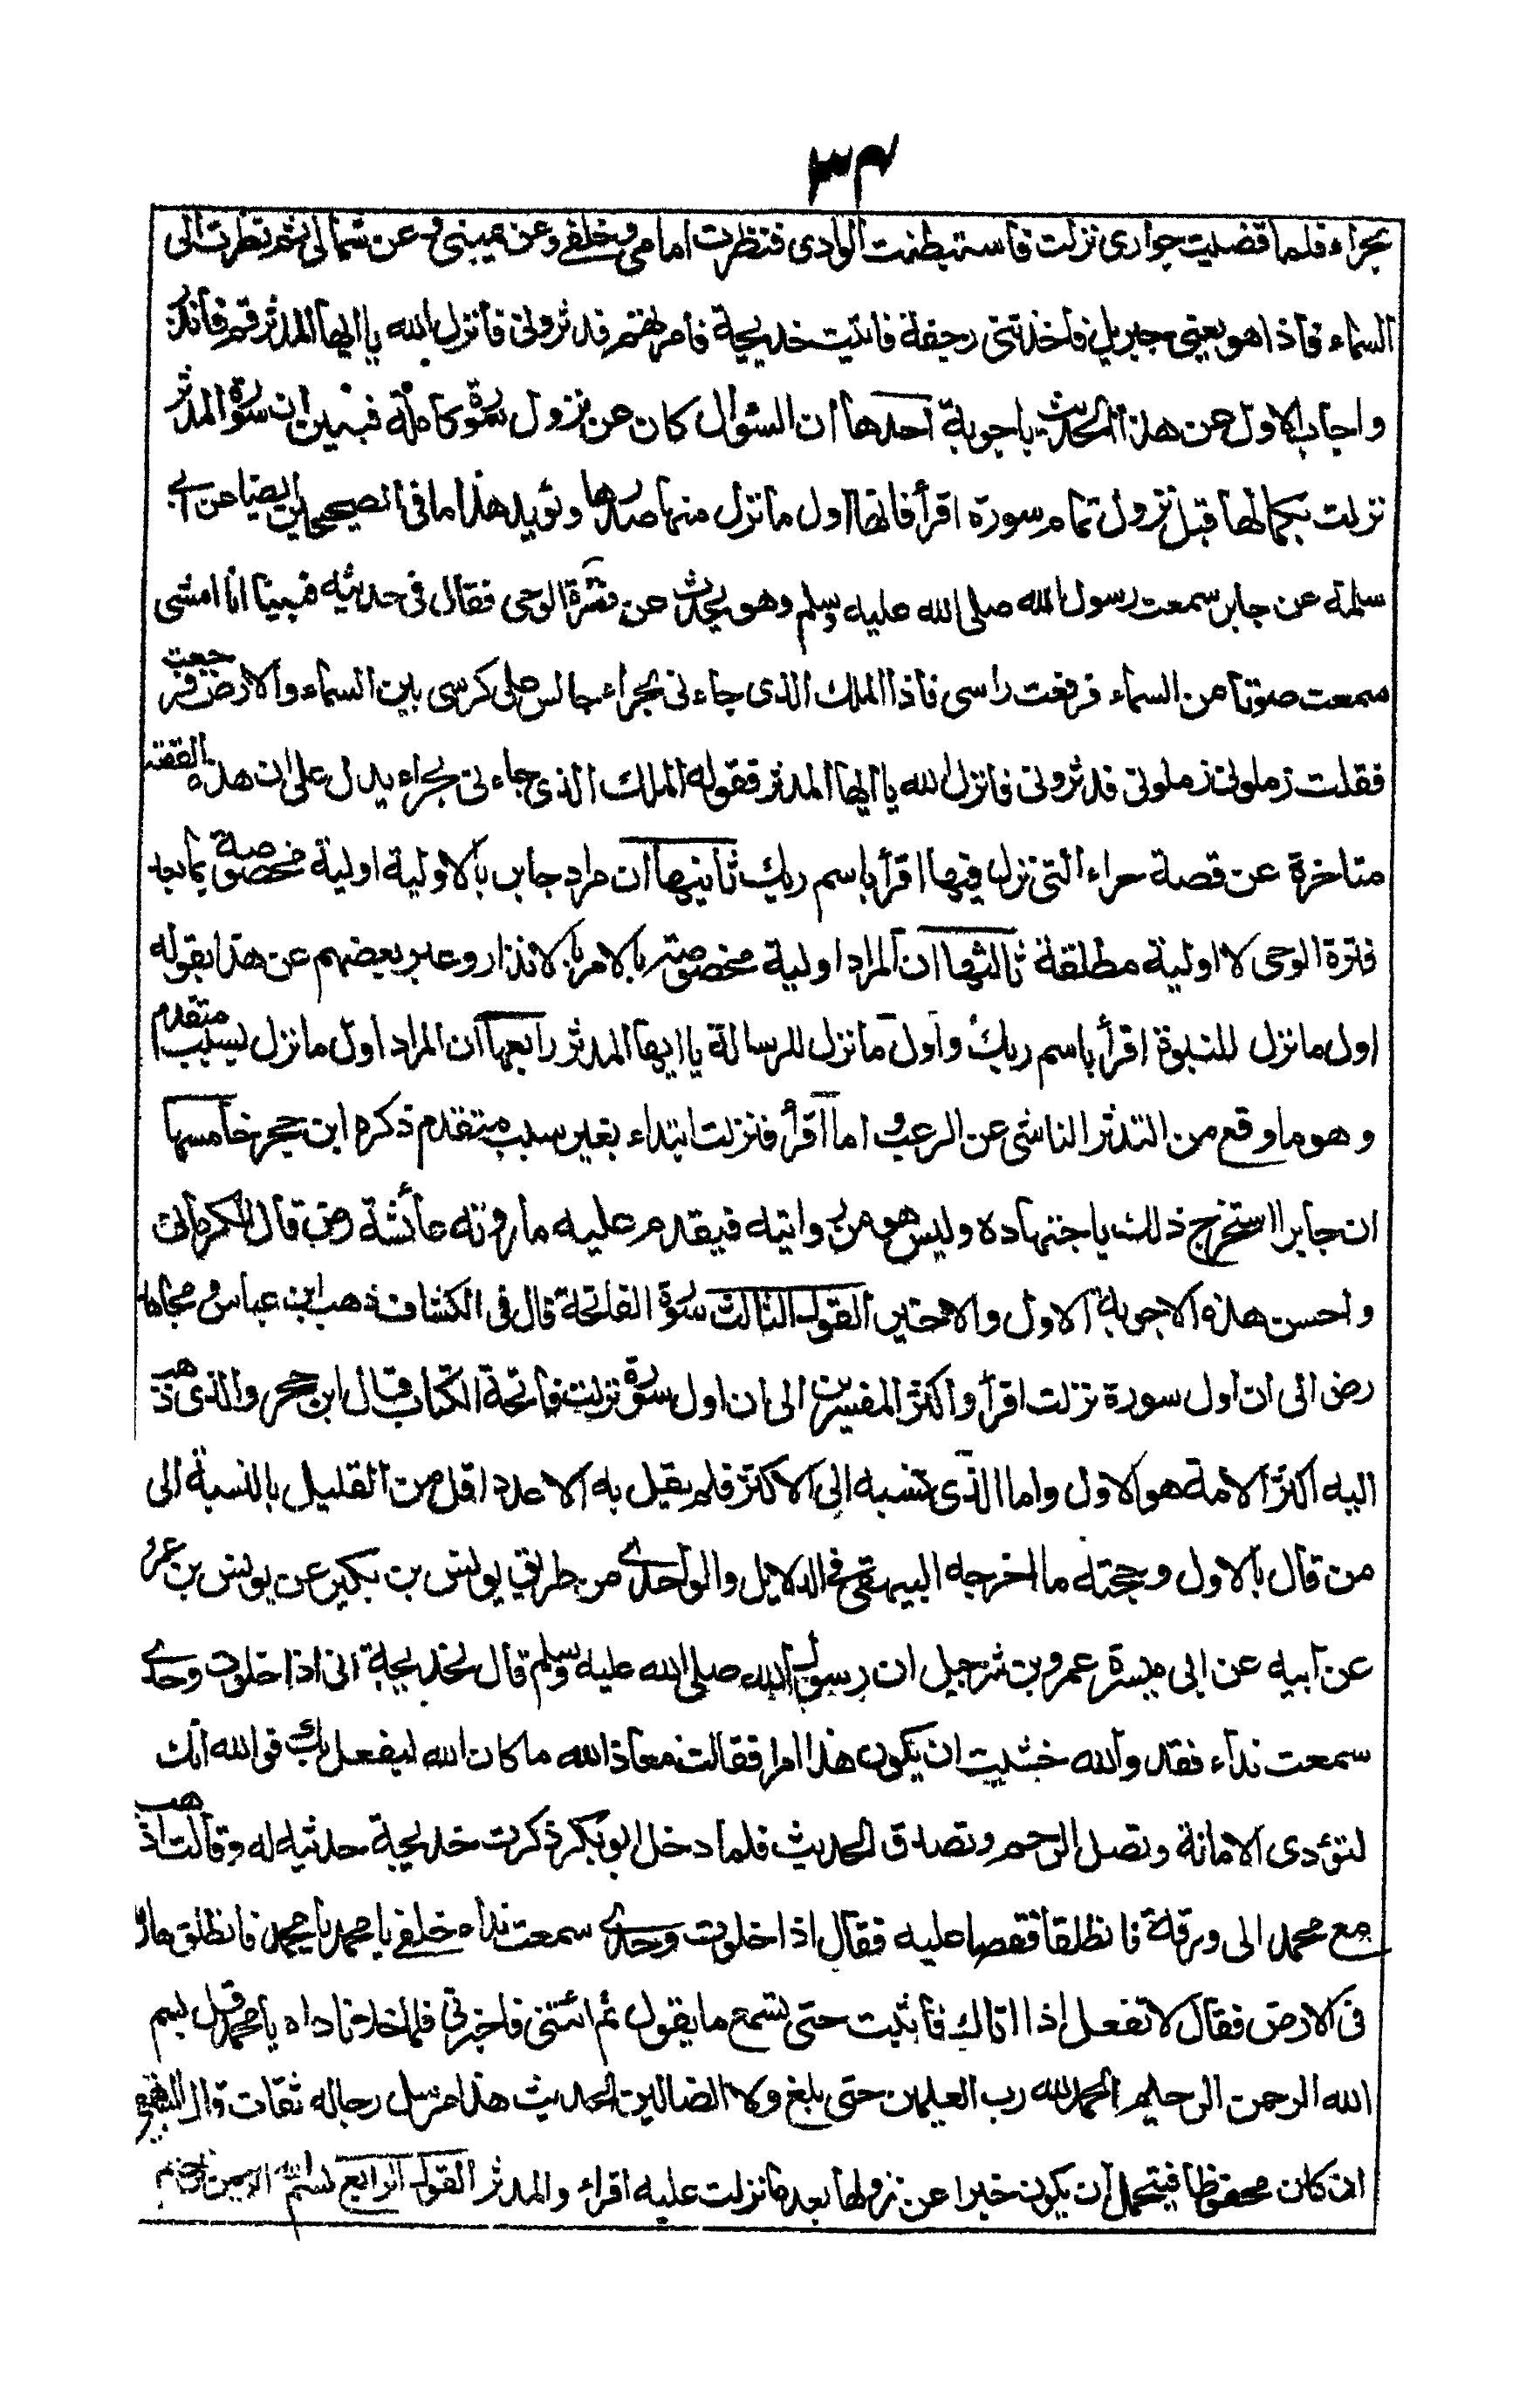 ٣٤
بحراء فلما قضيت جوارى نزلت فاستبطنت الوادى فنظرت امامى وخلفى وعن يمينى وعن شمالى ثم نظرت الى
السماء فاذا هو يعنى جبريل فاخذتنى رجفة فاتيت خديجة فامرتهم فدثرونى فانزل الله يا ايها المدثر قم فانذر
واجاب الاول عن هذا الحديث باجوبة احدها ان السؤال كان عن نزول سورة كاملة فبين ان سورة المدثر
نزلت بكمالها قبل نزول تمام سورة اقرأ فانها اول ما نزل منها صدرها ويؤيد هذا ما فى الصحيحين ايضا عن ابى
سلمة عن جابر سمعت رسول الله صلى الله عليه وسلم وهو يحدث عن فترة الوحى فقال فى حديثه فبينا انا امشى
سمعت صوتا من السماء فرفعت راسى فاذا الملك الذى جاءنى بحراء جالس على كرسى بين السماء والارض فرجعت
فقلت زملونى زملونى فدثرونى فانزل الله يا ايها المدثر فقوله الملك الذى جاءنى بحراء يدل على ان هذه القصة
متاخرة عن قصة حراء التى نزل فيها اقرأ باسم ربك ثانيها ان مراد جابر بالاولية اولية مخصوصة بما بعد
فترة الوحى لا اولية مطلقة ثالثها ان المراد اولية مخصوصة بالامر بالانذار وعبر بعضهم عن هذا بقوله
اول ما نزل للنبوة اقرأ باسم ربك واول ما نزل للرسالة يا ايها المدثر رابعها ان المراد اول ما نزل بسبب متقدم
وهو ما وقع من التدثر الناشى عن الرعب واما اقرأ فنزلت ابتداء بغير سبب متقدم ذكره ابن حجر خامسها
ان جابرا استخرج ذلك باجتهاده وليس هو من روايته فيقدم عليه ما روته عائشة رض قال الكرمانى
واحسن هذه الاجوبة الاول والاخير القول الثالث سورة الفاتحة قال فى الكشاف ذهب ابن عباس ومجاهد
رض الى ان اول سورة نزلت اقرأ واكثر المفسرين الى ان اول سورة نزلت فاتحة الكتاب قال ابن حجر والذى ذهب
اليه اكثر الامة هو الاول واما الذى نسبه الى الاكثر فلم يقل به الا عدد اقل من القليل بالنسبة الى
من قال بالاول وحجته ما اخرجه البيهقى فى الدلايل والواحدى من طريق يونس بن بكير عن يونس بن عمرو
عن ابيه عن ابى ميسرة عمرو بن شرجيل ان رسول الله صلى الله عليه وسلم قال لخديجة انى اذا خلوت وحدى
سمعت نداء فقد والله خشيت ان يكون هذا امرا فقالت معاذ الله ما كان الله ليفعل بك فو الله انك
لتؤدى الامانة وتصل الرحم وتصدق الحديث فلما دخل ابو بكر ذكرت خديجة حديثه له وقالت اذهب
مع محمد الى ورقة فانطلقا فقصا عليه فقال اذا خلوت وحدى سمعت نداء خلفى يا محمد يا محمد فانطلق هاربا
فى الارض فقال لا تفعل اذا اتاك فاثبت حتى تسمع ما يقول ثم ائتنى فاخبرنى فلما خلا ناداه يا محمد قل بسم
الله الرحمن الرحيم الحمد لله رب العلمين حتى بلغ ولا الضالين الحديث هذا مرسل رجاله ثقات قال البيهقى
ان كان محفوظا فيحتمل ان يكون خبرا عن نزولها بعد ما نزلت عليه اقراء والمدثر القول الرابع بسم الله الرحمن الرحيم